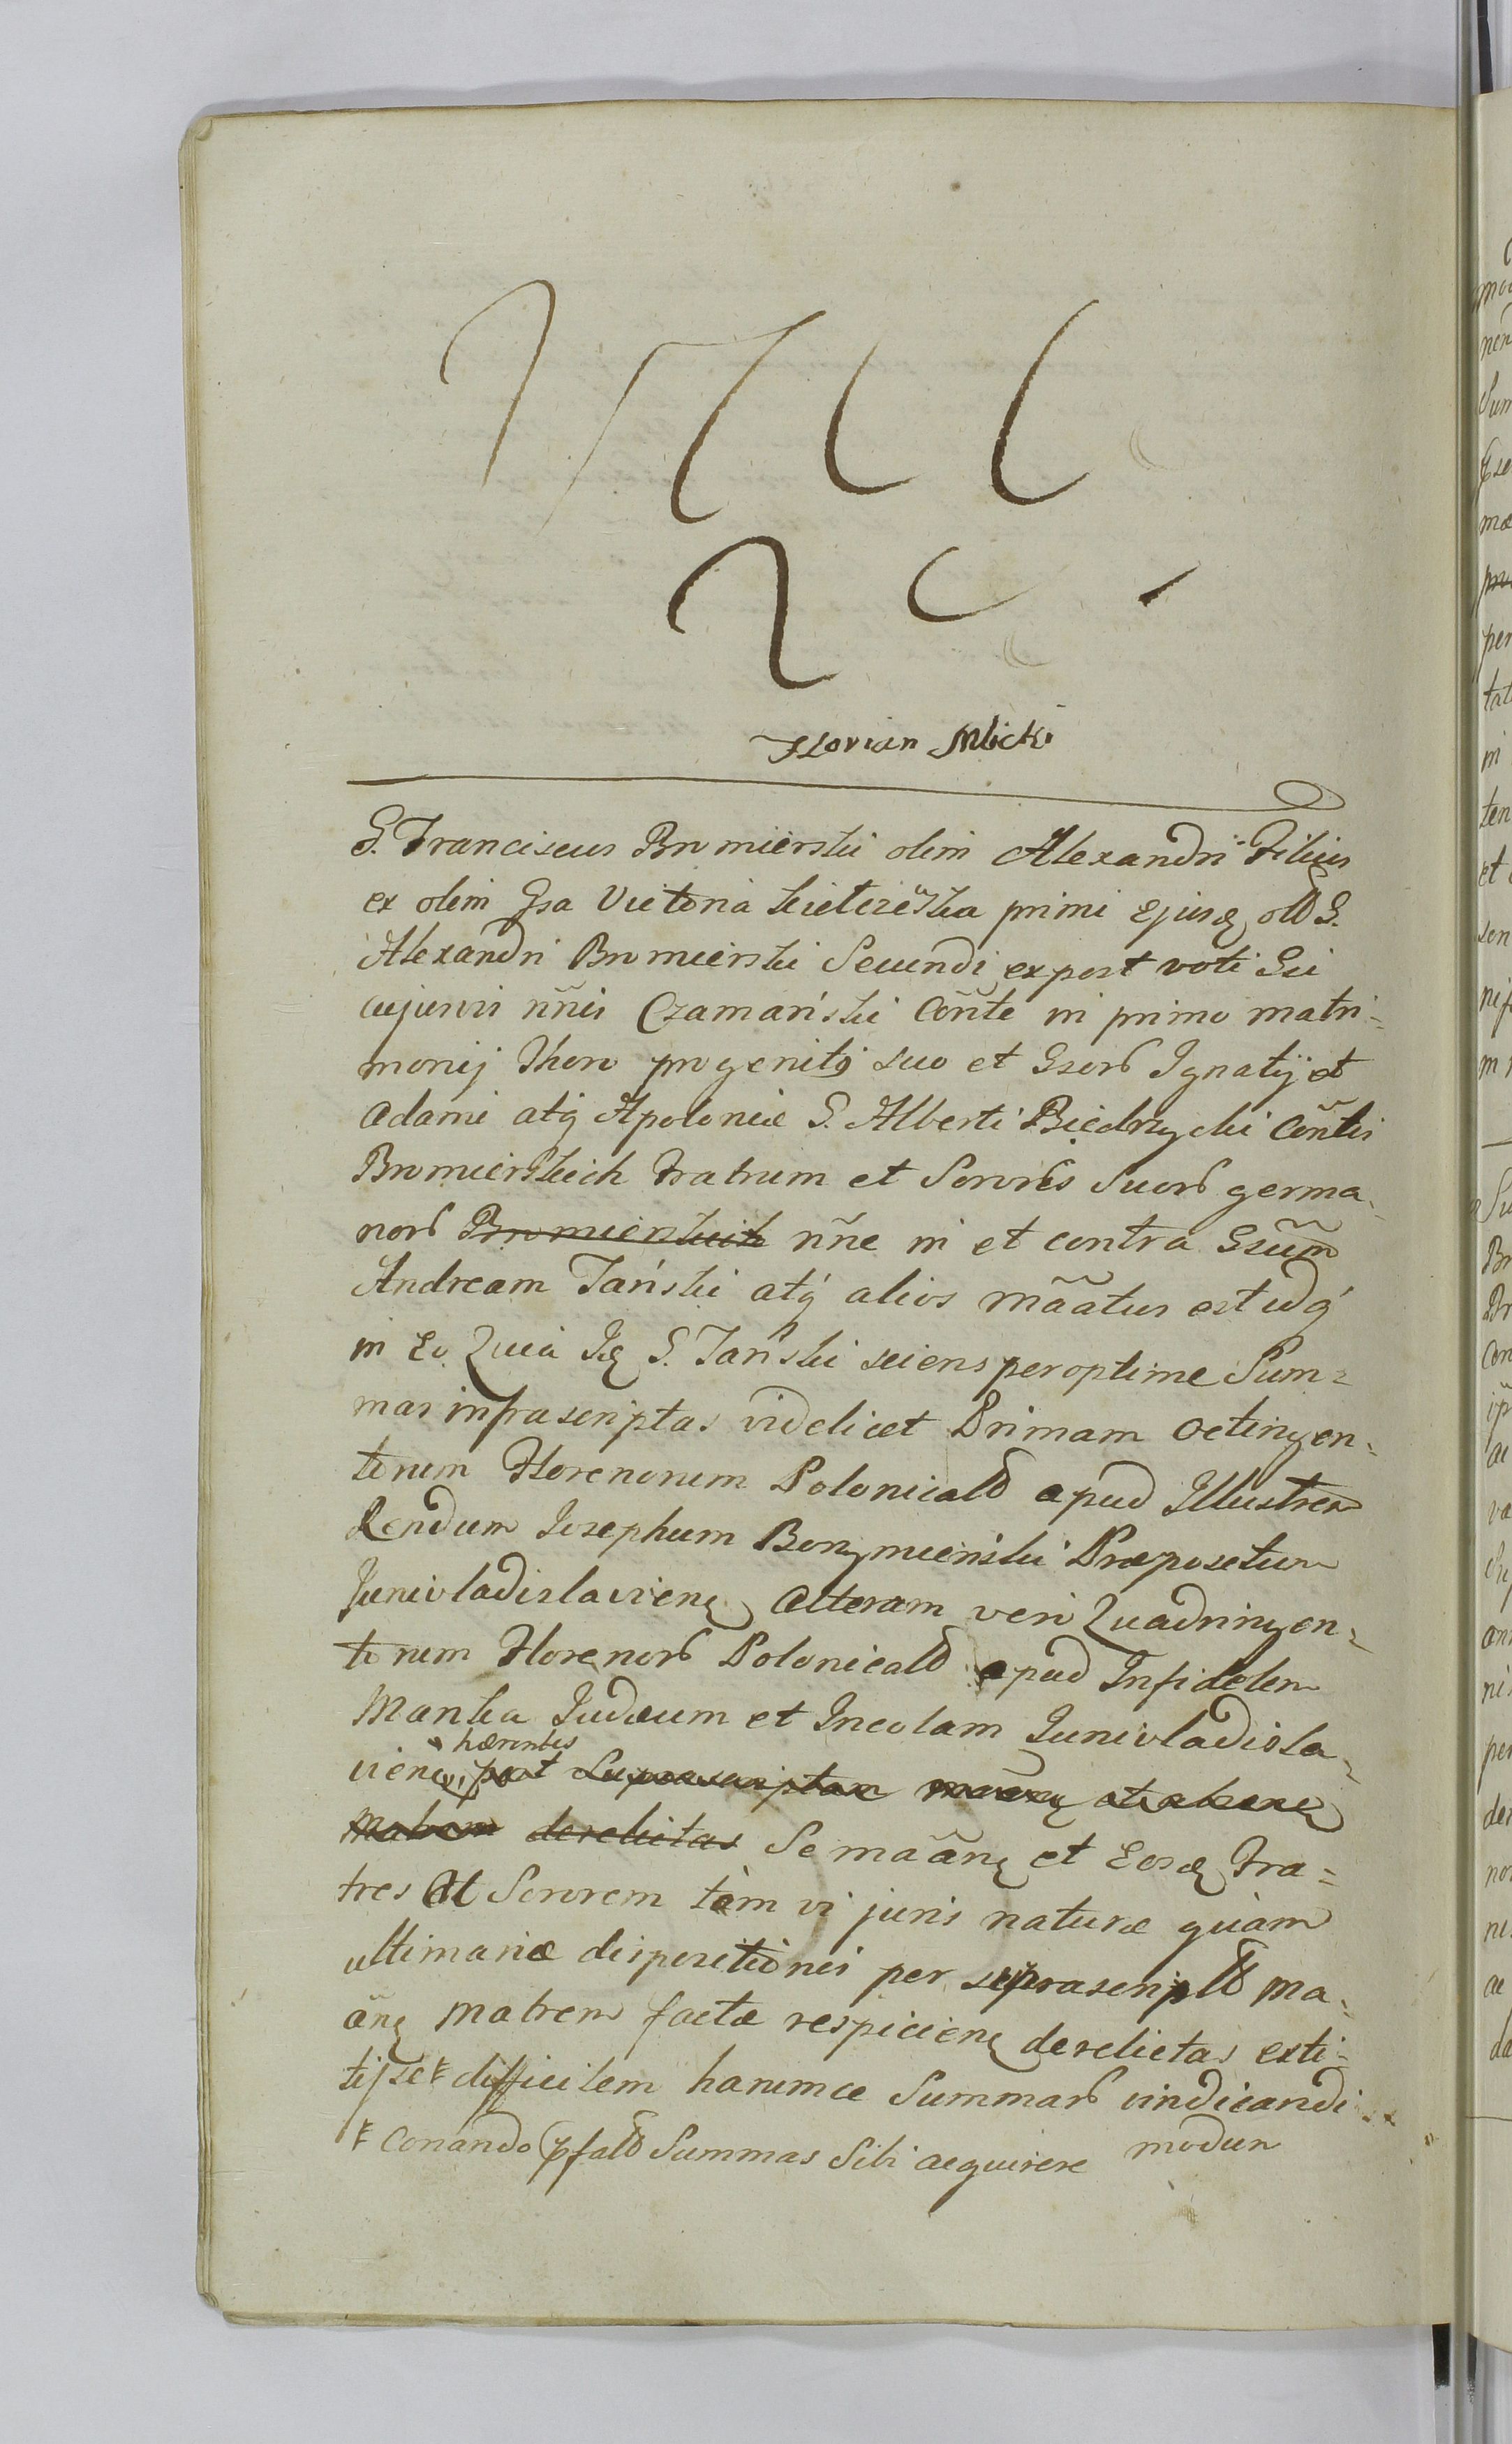 Florian Mlicki
G. Franciscus Bromierski olim Alexandri Filius
ex olim Gsa Victoria primi ejusq, old G.
Alexandri Bromierski Secundi expost voti Gi
cujusvis nñis Czamański Coñte in primo matri=
monij thoro progenitq suo et Gsorb Ignatij et
Adami atq Apoloniæ G. Alberti Biedrzycki Coñtis
Bromierskich Fratrum et Sororis Suorb germa-
norb Bromierskich nñe in et contra Gsum̃
Andream Tański atq́ alios mãatus est idq́
in Eo Quia Iq G. Tański sciens peroptime Sum=
mas infrascriptas videlicet Primam octingen=
torum Florenorum Polonicald apud Illustrem
Rendum Josephum Præpositum
Junivladislaviens, alteram vero Quadringen=
torum Florenorb Polonicald apud Infidelem
Manka Judæum et Incolam Junivladisla=
hærentes
viens, post Suprascriptam
Matrem derelictas Se mãanq et Eosq Fra=
tres et Sororem tàm vi juris naturæ quàm
ultimariæ dispositionis per suprascriptd Ma=
ãnq Matrem factæ respicienq derelictas exti=
tisse difficilem harumce Summarb vindicandi
modum
Conando pfatd Summas Sibi acquirere